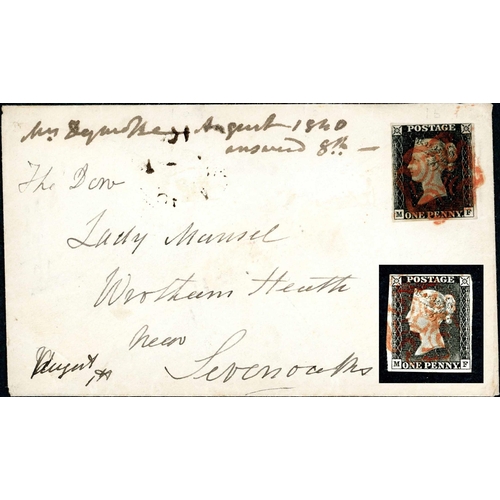 Mrs Dymoke August 1840
answered 8th —
POSTAGE
M ONE PENNY F
The Dow
Lady Mansel
Wrotham Heath
near
Sevenoaks
August
POSTAGE
M ONE PENNY F